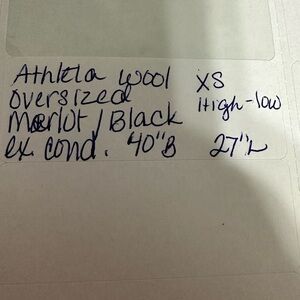 Athleta wool XS
oversized High-low
Merlot/Black
ex cond. 40"B 27"L